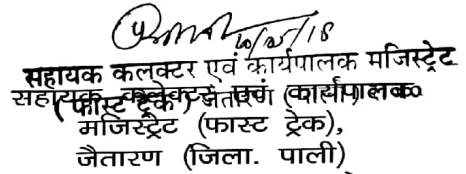 20/5/18
सहायक कलक्टर एवं कार्यपालक मजिस्ट्रेट
(फास्ट ट्रेक) जैतारण (पाली)
सहायक कलेक्टर एवं कार्यपालक
मजिस्ट्रेट (फास्ट ट्रेक),
जैतारण (जिला. पाली)